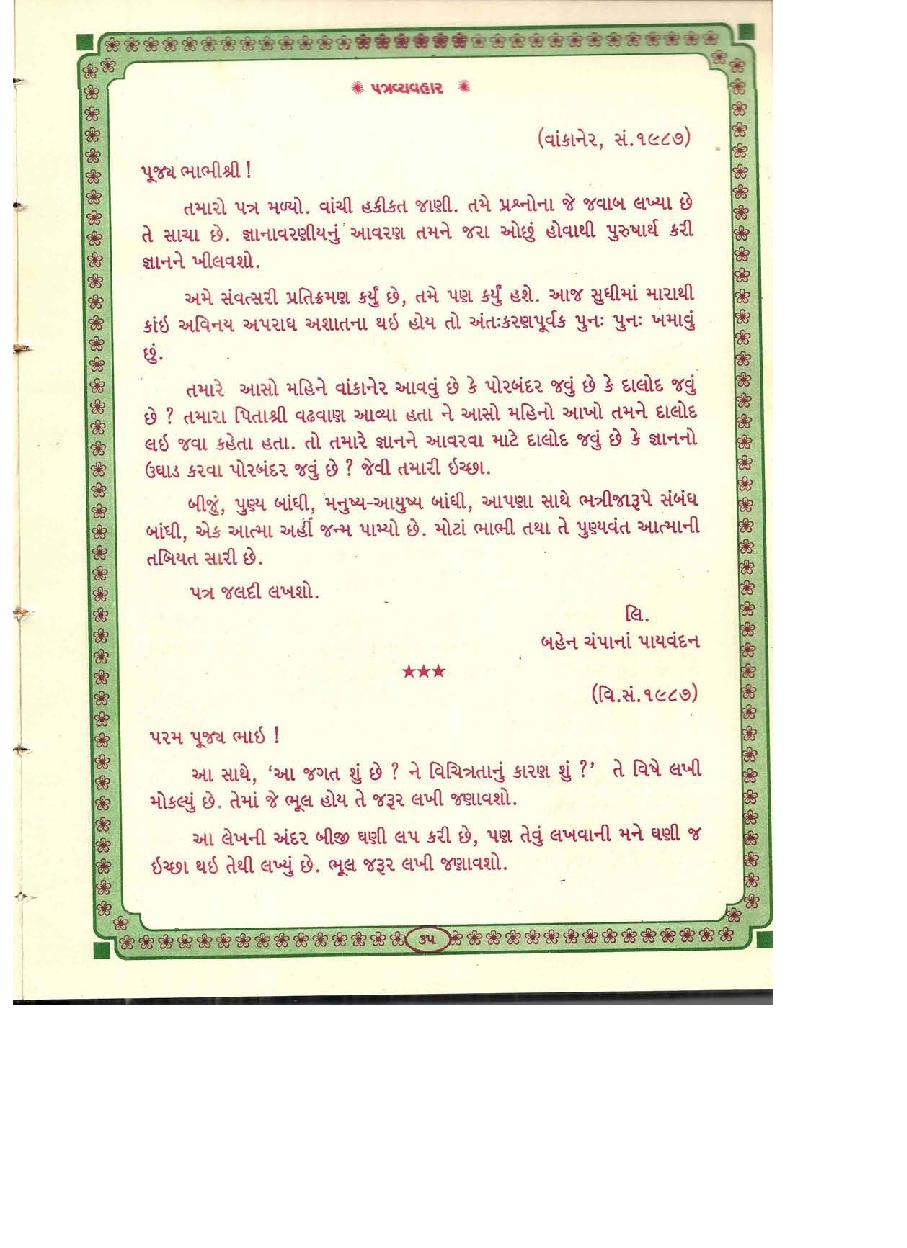 પત્રવ્યવહાર
(વાંકાનેર, સં.૧૯૮૭)
પૂજ્ય ભાભીશ્રી !
તમારો પત્ર મળ્યો. વાંચી હકીકત જાણી. તમે પ્રશ્નોના જે જવાબ લખ્યા છે
તે સાચા છે. જ્ઞાનાવરણીયનું આવરણ તમને જરા ઓછું હોવાથી પુરુષાર્થ કરી
જ્ઞાનને ખીલવશો.
અમે સંવત્સરી પ્રતિક્રમણ કર્યું છે, તમે પણ કર્યું હશે. આજ સુધીમાં મારાથી
કાંઇ અવિનય અપરાધ અશાતના થઇ હોય તો અંતઃકરણપૂર્વક પુનઃ પુનઃ ખમાવું
છું.
તમારે આસો મહિને વાંકાનેર આવવું છે કે પોરબંદર જવું છે કે દાલોદ જવું
છે ? તમારા પિતાશ્રી વઢવાણ આવ્યા હતા ને આસો મહિનો આખો તમને દાલોદ
લઇ જવા કહેતા હતા. તો તમારે જ્ઞાનને આવરવા માટે દાલોદ જવું છે કે જ્ઞાનનો
ઉઘાડ કરવા પોરબંદર જવું છે ? જેવી તમારી ઇચ્છા.
બીજું, પુણ્ય બાંધી, મનુષ્ય-આયુષ્ય બાંધી, આપણા સાથે ભત્રીજારૂપે સંબંધ
બાંધી, એક આત્મા અહીં જન્મ પામ્યો છે. મોટાં ભાભી તથા તે પુણ્યવંત આત્માની
તબિયત સારી છે.
પત્ર જલદી લખશો.
લિ.
બહેન ચંપાનાં પાયવંદન
★★★
(વિ.સં.૧૯૮૭)
પરમ પૂજ્ય ભાઇ !
આ સાથે, ‘આ જગત શું છે ? ને વિચિત્રતાનું કારણ શું ?’ તે વિષે લખી
મોકલ્યું છે. તેમાં જે ભૂલ હોય તે જરૂર લખી જણાવશો.
આ લેખની અંદર બીજી ઘણી લપ કરી છે, પણ તેવું લખવાની મને ઘણી જ
ઇચ્છા થઇ તેથી લખ્યું છે. ભૂલ જરૂર લખી જણાવશો.
૩૫